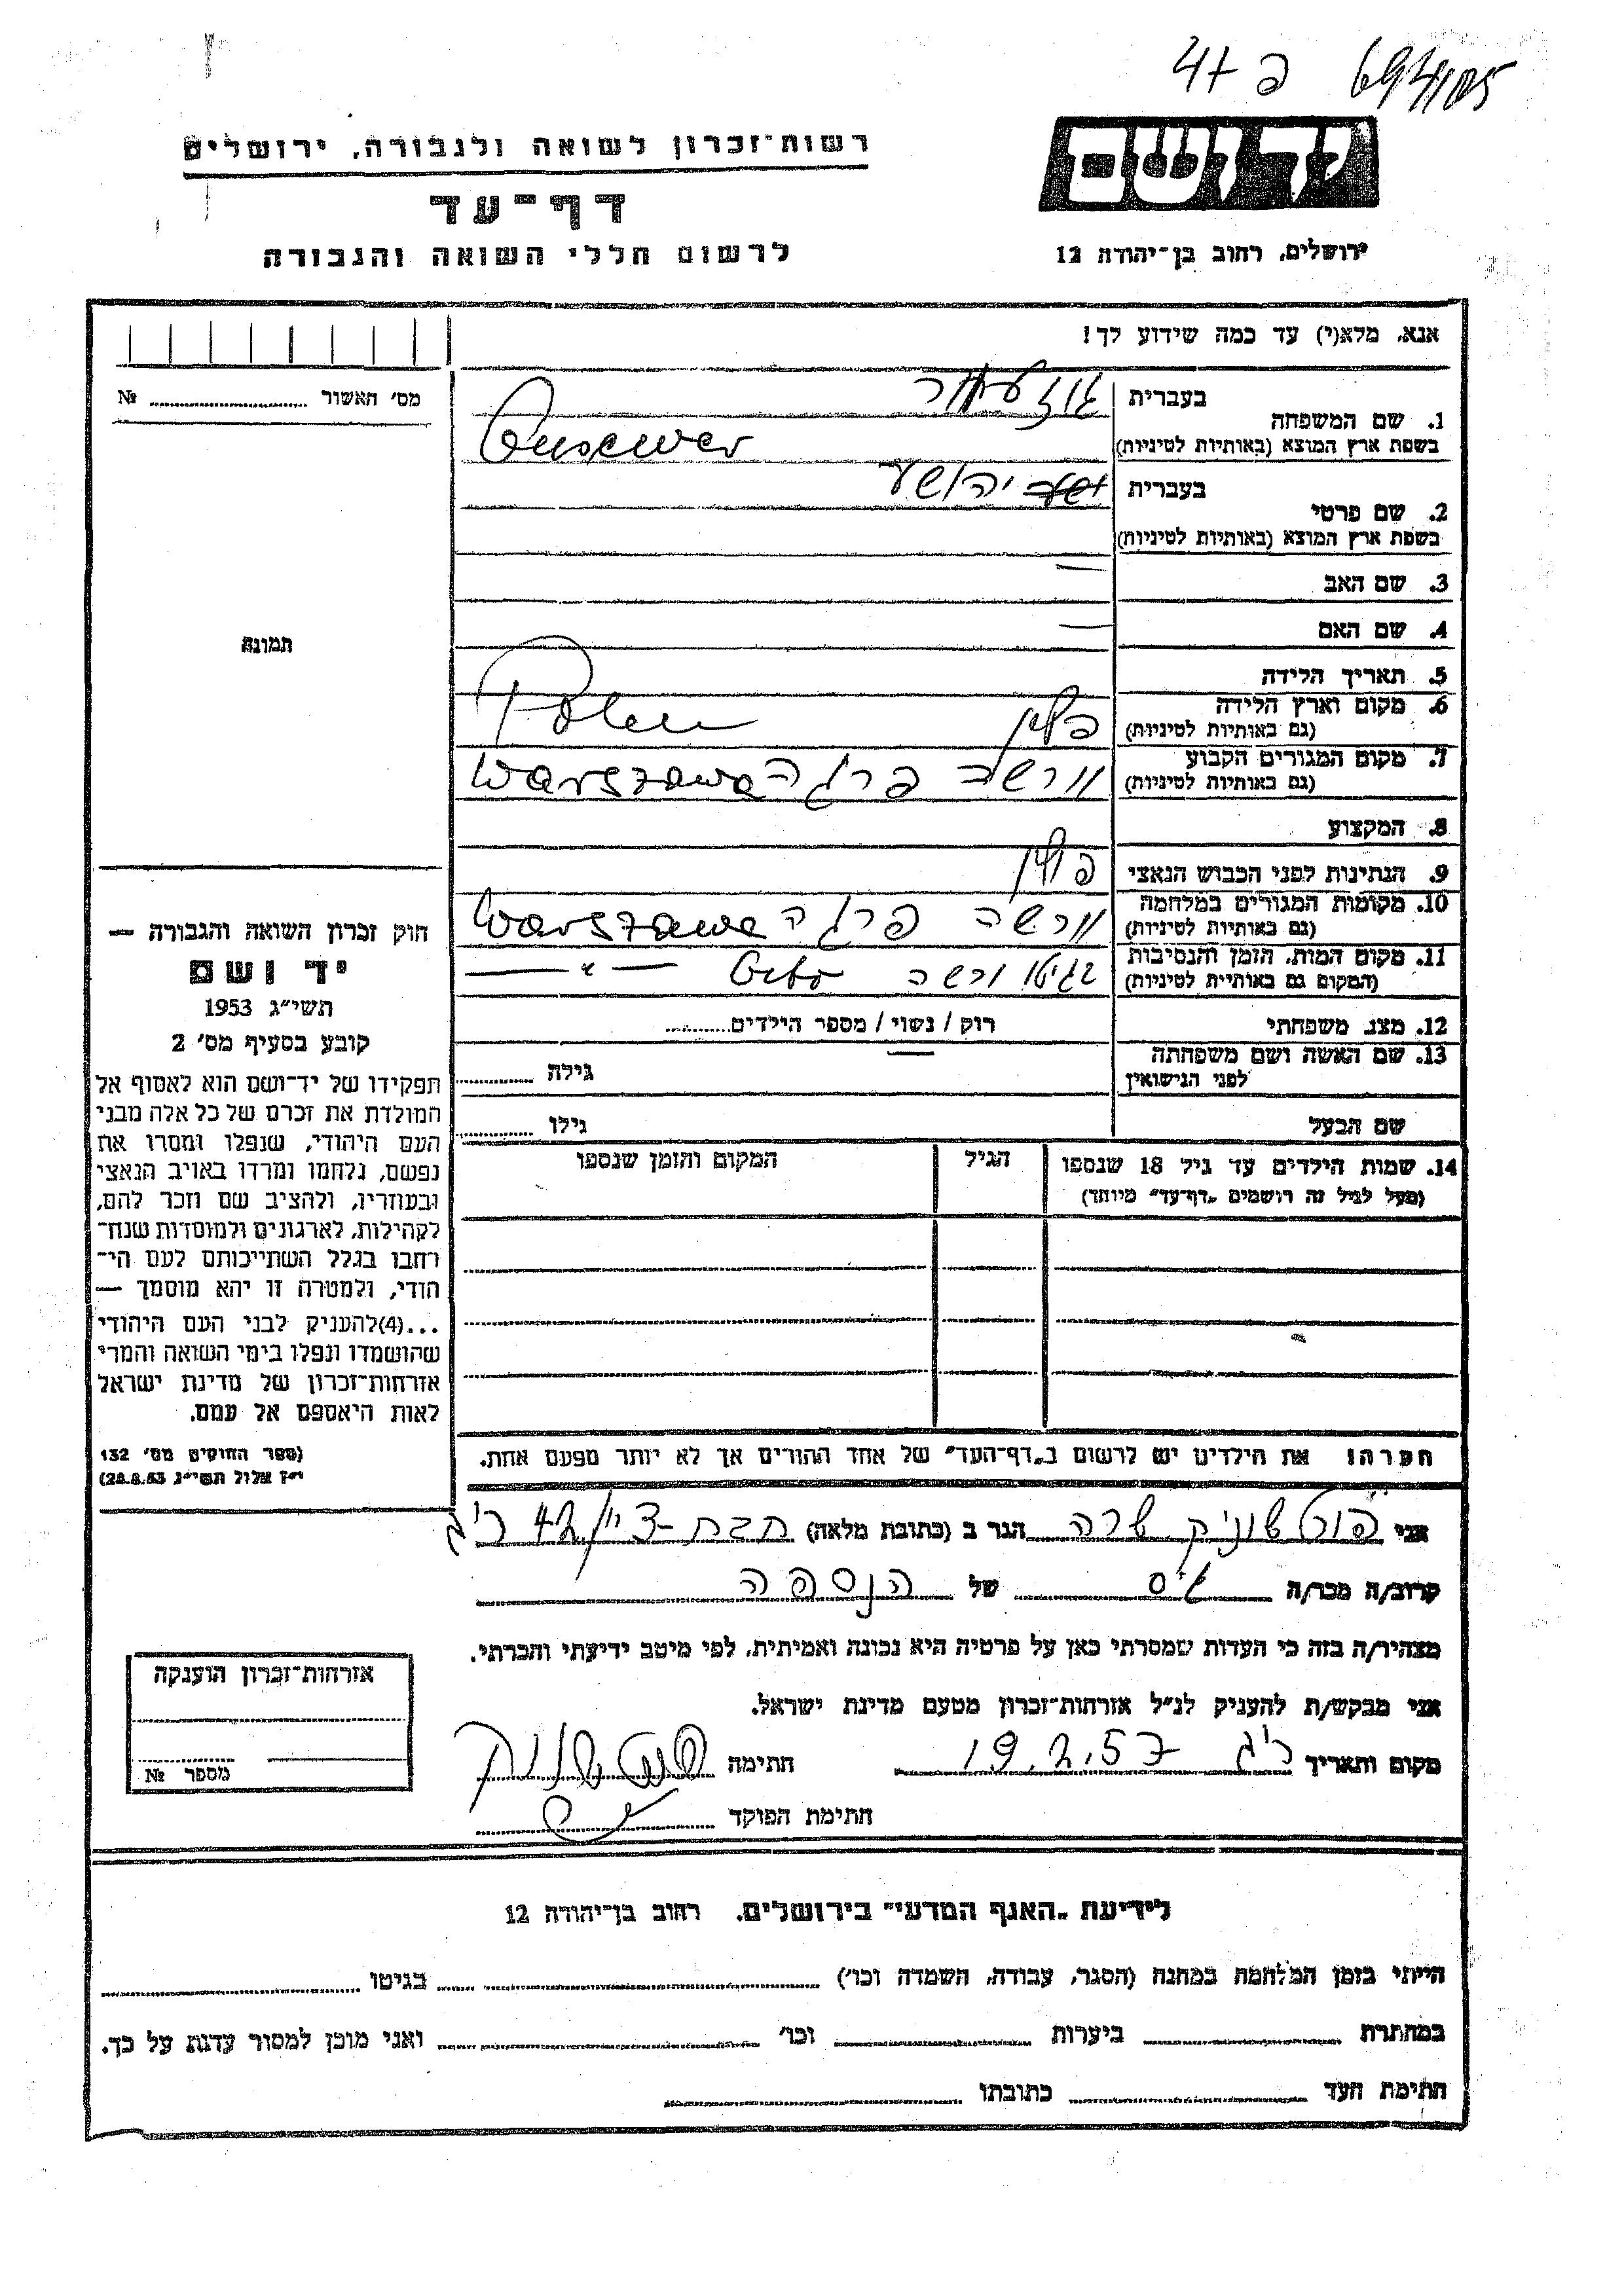 פ 47
רשות־זכרון לשואה ולגבורה, ירושלים
דף־עד
לרשום חללי השואה והגבורה
יד ושם
ירושלים, רחוב בן־יהודה 12
אנא, מלא(י) עד כמה שידוע לך!
מס' האשור № ........
1. שם המשפחה
בעברית
בשפת ארץ המוצא (באותיות לטיניות)
2. שם פרטי
בעברית יהושע
בשפת ארץ המוצא (באותיות לטיניות)
3. שם האב —
4. שם האם —
5. תאריך הלידה
6. מקום וארץ הלידה פולין Polen
(גם באותיות לטיניות)
7. מקום המגורים הקבוע וורשה פרגה Warszawa
(גם באותיות לטיניות)
8. המקצוע
9. הנתינות לפני הכבוש הנאצי פולין
10. מקומות המגורים במלחמה וורשה פרגה Warszawa
(גם באותיות לטיניות)
11. מקום המות, הזמן והנסיבות בגיטו ורשה Geto — " —
(המקום גם באותיית לטיניות)
12. מצב משפחתי רוק / נשוי / מספר הילדים........
13. שם האשה ושם משפחתה
לפני הנישואין
גילה ........
שם הבעל גילו ........
14. שמות הילדים עד גיל 18 שנספו
(מעל לגיל זה רושמים „דף־עד" מיוחד)
הגיל
המקום והזמן שנספו
תמונה
חוק זכרון השואה והגבורה —
יד ושם
תשי"ג 1953
קובע בסעיף מס' 2
תפקידו של יד־ושם הוא לאסוף אל
המולדת את זכרם של כל אלה מבני
העם היהודי, שנפלו ומסרו את
נפשם, נלחמו ומרדו באויב הנאצי
ובעוזריו, ולהציב שם וזכר להם,
לקהילות, לארגונים ולמוסדות שנח־
רחבו בגלל השתייכותם לעם הי־
הודי, ולמטרה זו יהא מוסמך —
...(4)להעניק לבני העם היהודי
שהושמדו ונפלו בימי השואה והמרי
אזרחות־זכרון של מדינת ישראל
לאות היאספם אל עמם.
(ספר החוקים מס' 132
י"ז אלול תשי"ג 28.8.53)
הערה: את הילדים יש לרשום ב„דף־העד" של אחד ההורים אך לא יותר מפעם אחת.
אני פורטנויק שרה הגר ב (כתובת מלאה) חבת-ציון 42 ר"ג
קרוב/ה מכר/ה גיס של הנספה
מצהיר/ה בזה כי העדות שמסרתי כאן על פרטיה היא נכונה ואמיתית, לפי מיטב ידיעתי והכרתי.
אני מבקש/ת להעניק לנ"ל אזרחות־זכרון מטעם מדינת ישראל.
מקום ותאריך ר"ג 19.2.57 חתימה
חתימת הפוקד
אזרחות־זכרון הוענקה
מספר №
לידיעת „האגף המדעי" בירושלים, רחוב בן־יהודה 12
הייתי בזמן המלחמה במחנה (הסגר, עבודה, השמדה וכו') ........ בגיטו ........
במחתרת ........ ביערות ........ וכו' ........ ואני מוכן למסור עדות על כך.
חתימת העד ........ כתובתו ........